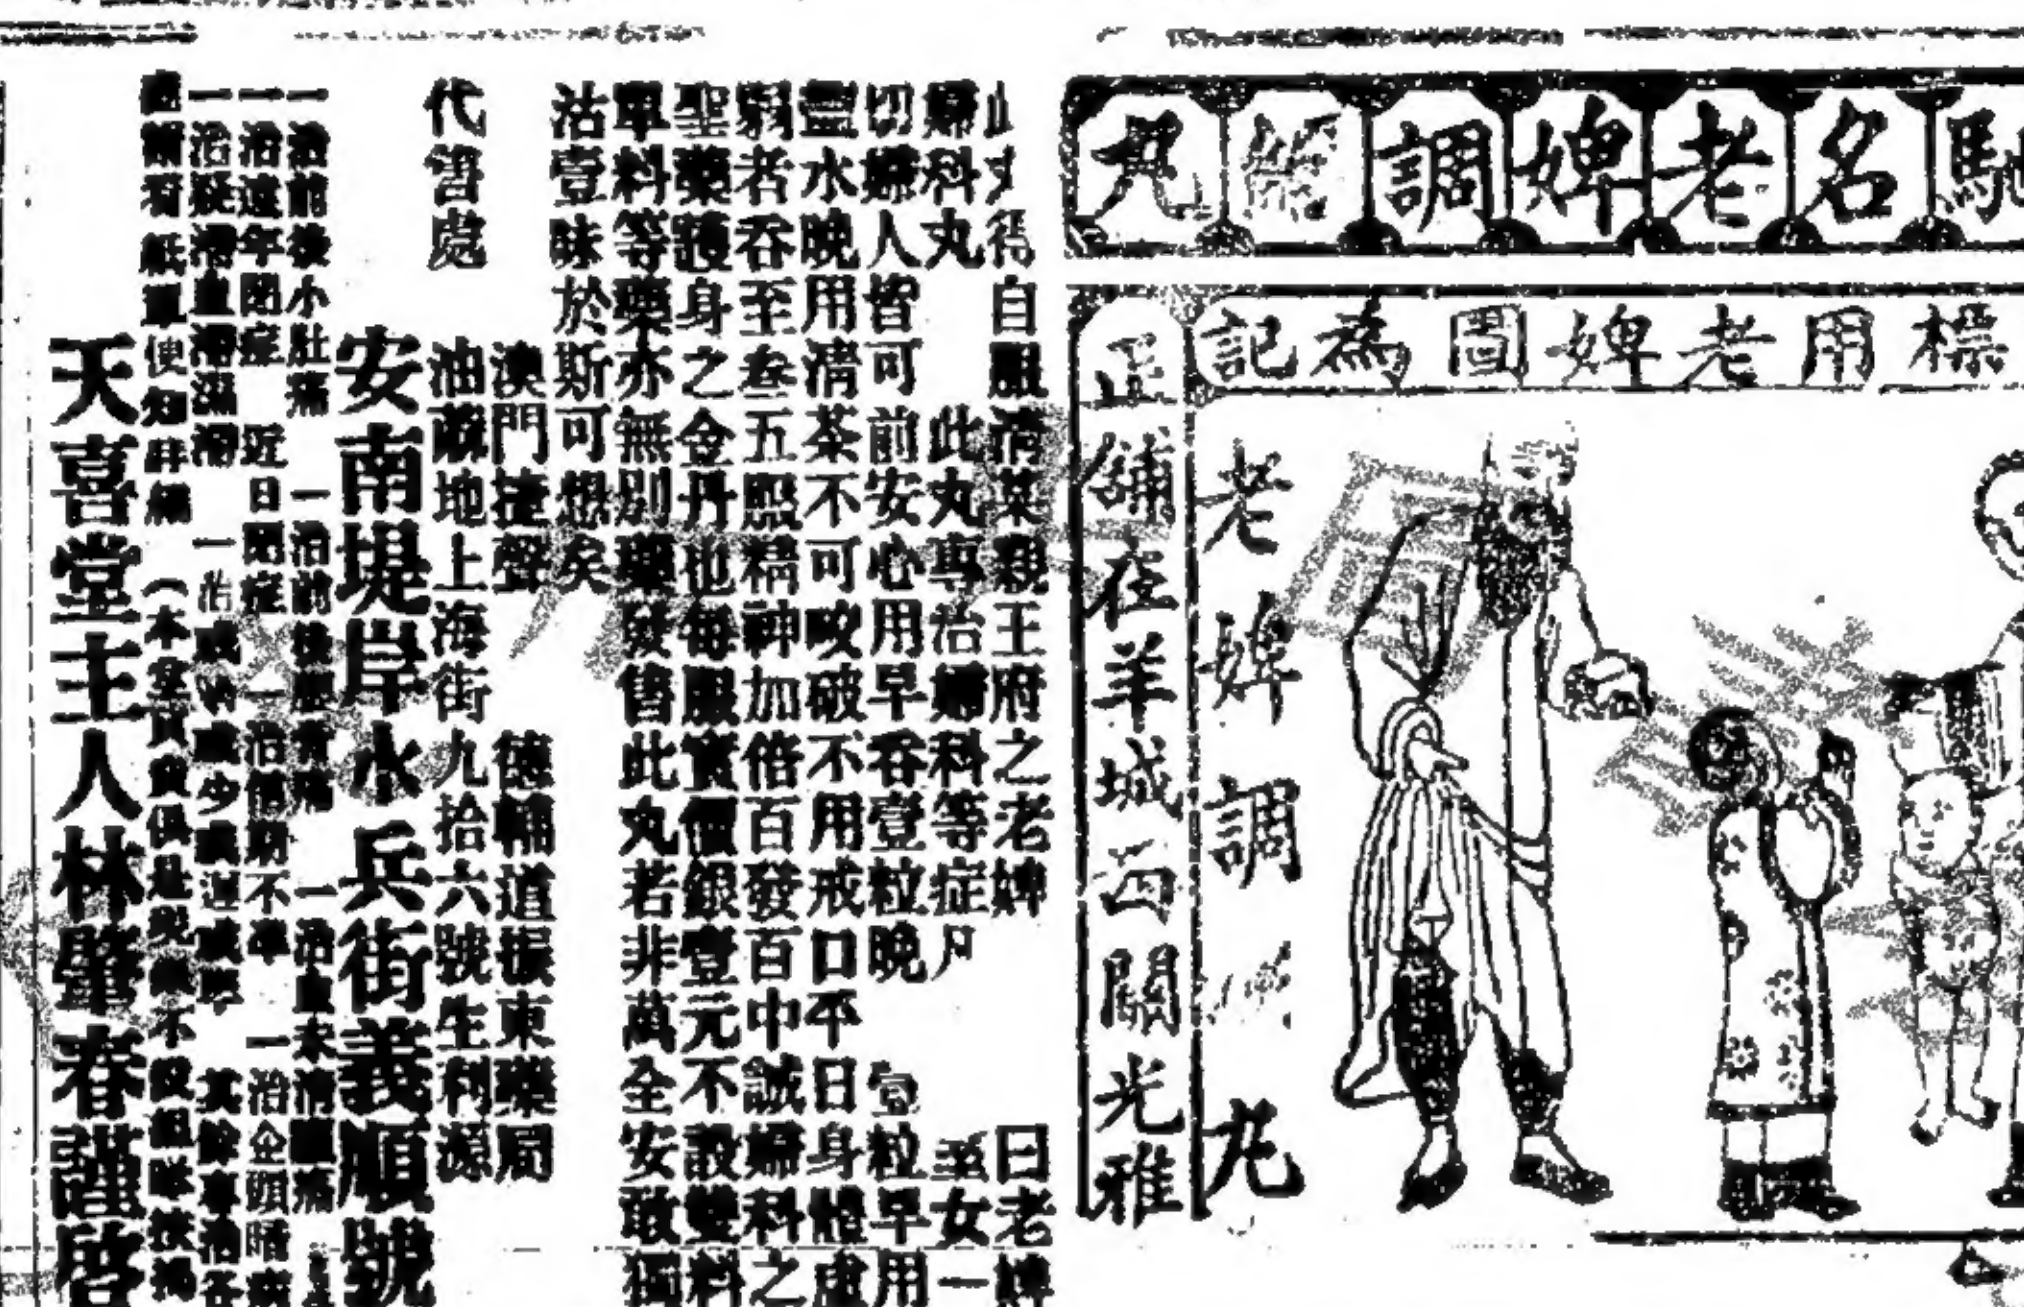 馳名老婢調經丸
標用老婢圖為記
正舖在羊城西關光雅
老婢調丸
自服清菜親王府之老婢 曰老婢
婦科丸 此丸專治婦科等症 室女一
切婦人皆可前安心用早吞壹粒晚 壹粒早用
靈水晚用清茶不可咬破不用戒口平日身體虛
弱者吞至叁五照精神加倍百發百中誠婦科之
聖藥護身之金丹也每服實價銀壹元不設雙料
單料等藥亦無別藥發售此丸若非萬全安敢獨
沽壹味於斯可想矣
代售處
澳門捷聲 德輔道振東藥局
油蔴地上海街九拾六號生利源
安南堤岸水兵街義順號
一治前後小肚痛 一治前後腰背痛 一治血未清腹痛
一治遠年閉症 近日閉症 一治信期不準 一治企頭晴
一治或 或少或遲或早 其餘專治各
使知詳細 (本堂 俱是 不設
天喜堂主人林肇春謹啓